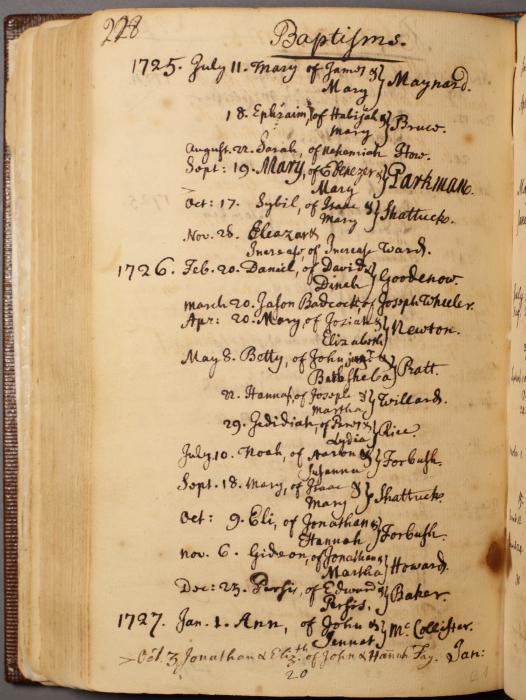 228
Baptisms.
1725. July 11. Mary of James &
Mary } Maynard.
18. Ephraim, of Halijah &
Mary } Bruce.
August. 22. Sarah, of Nehemiah How.
Sept: 19. Mary, of Ebenezer &
Mary } Parkman.
Oct: 17. Sybil, of Isaac &
Mary } Shattuck.
Nov. 28. Eleazar &
Increase, of Increase Ward.
1726. Feb. 20. Daniel, of David &
Dinah } Goodenow.
March 20. Jason Badcock, of Joseph Wheeler.
Apr: 20. Mary, of Josiah &
Elizabeth } Newton.
May 8. Betty, of John junr. &
Bathsheba } Pratt.
22. Hannah, of Joseph &
Martha } Willard.
29. Jedidiah, of &
Lydia } Rice.
July. 10. Noah, of Aaron &
Susanna } Forbush.
Sept. 18. Mary, of Isaac &
Mary } Shattuck.
Oct: 9. Eli, of Jonathan &
Hannah } Forbush.
Nov. 6. Gideon, of Jonathan &
Martha } Howard.
Dec: 25. Persis, of Edward &
Persis, } Baker.
1727. Jan. 1. Ann, of John &
Jennet } Mc. Collister.
> Oct. 3 Jonathan & Elizth. of John & Hannah Fay. Jan:
20